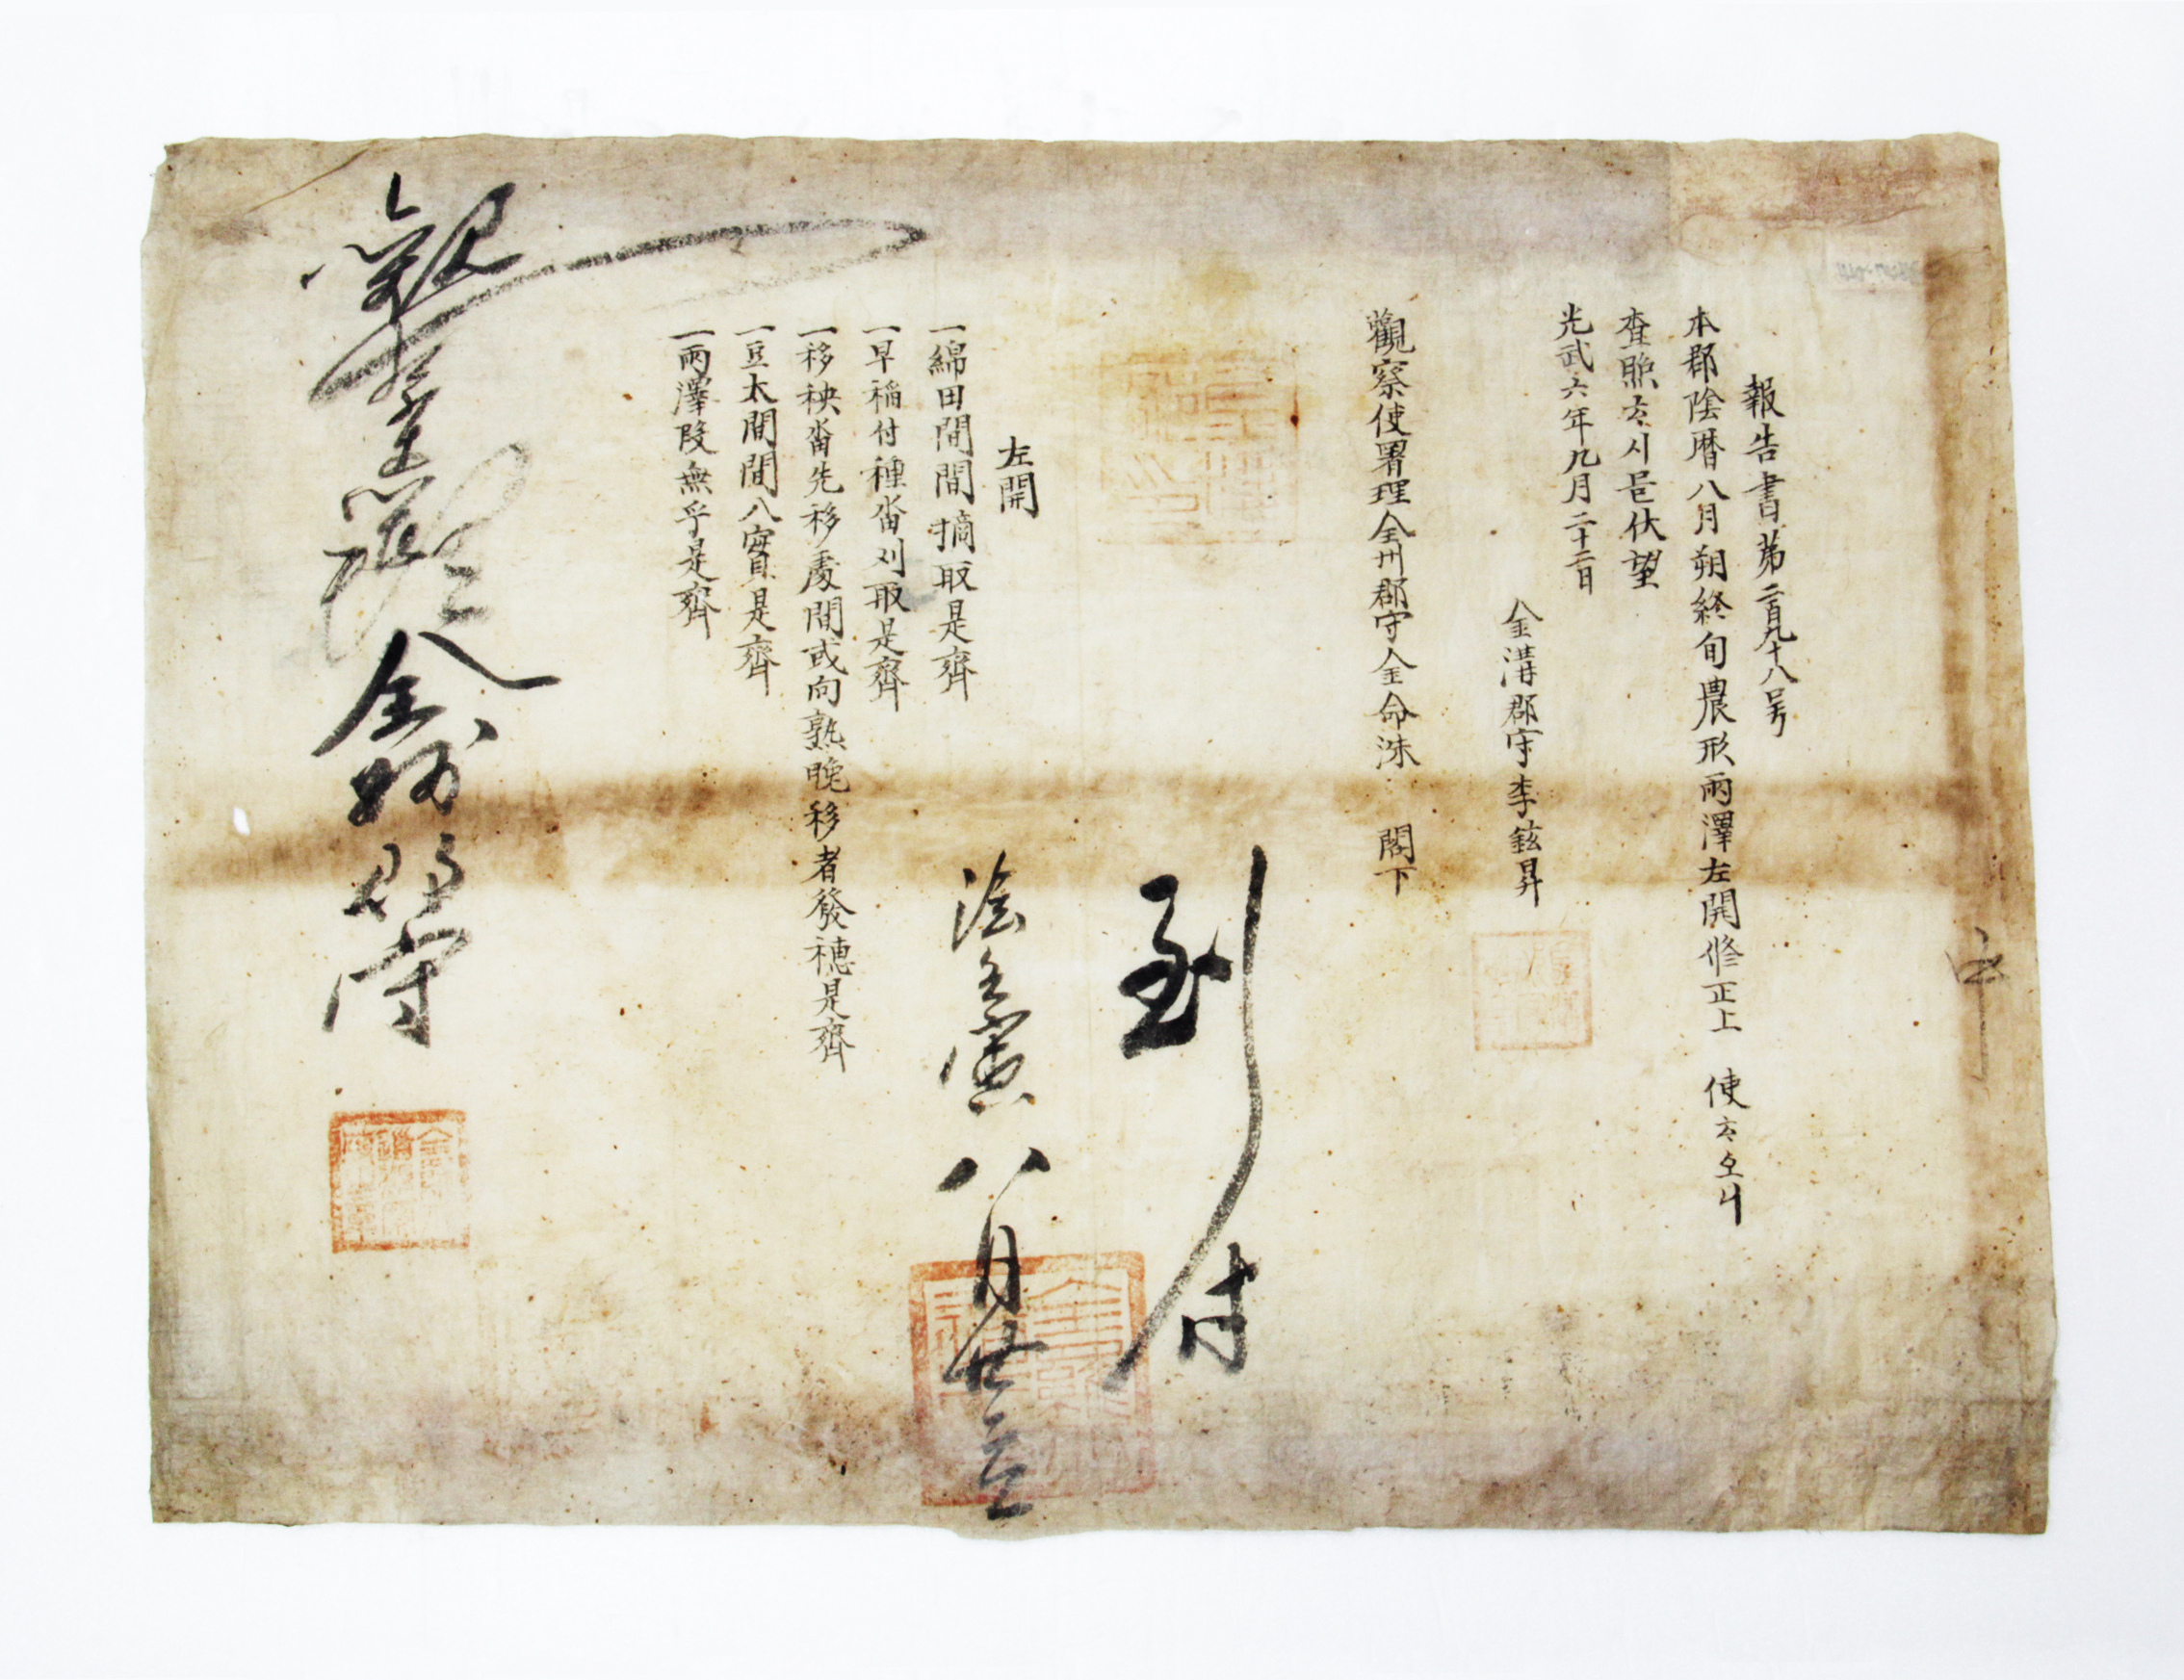 報告書第二百九十八号
本郡陰曆八月朔終旬農形雨澤左開修正上 使하오니
査照하시믈伏望
光武六年九月二十二日
金溝郡守李鉉昇
觀察使署理全州郡守金命洙 閣下
到付
陰 八月廿
左開
一綿田間間摘取是齊
一早稲付種畓刈取是齊
一移秧畓先移處間或向熟晚移者發穗是齊
一豆太間間八實是齊
一雨澤段無乎是齊
觀察 全州郡守